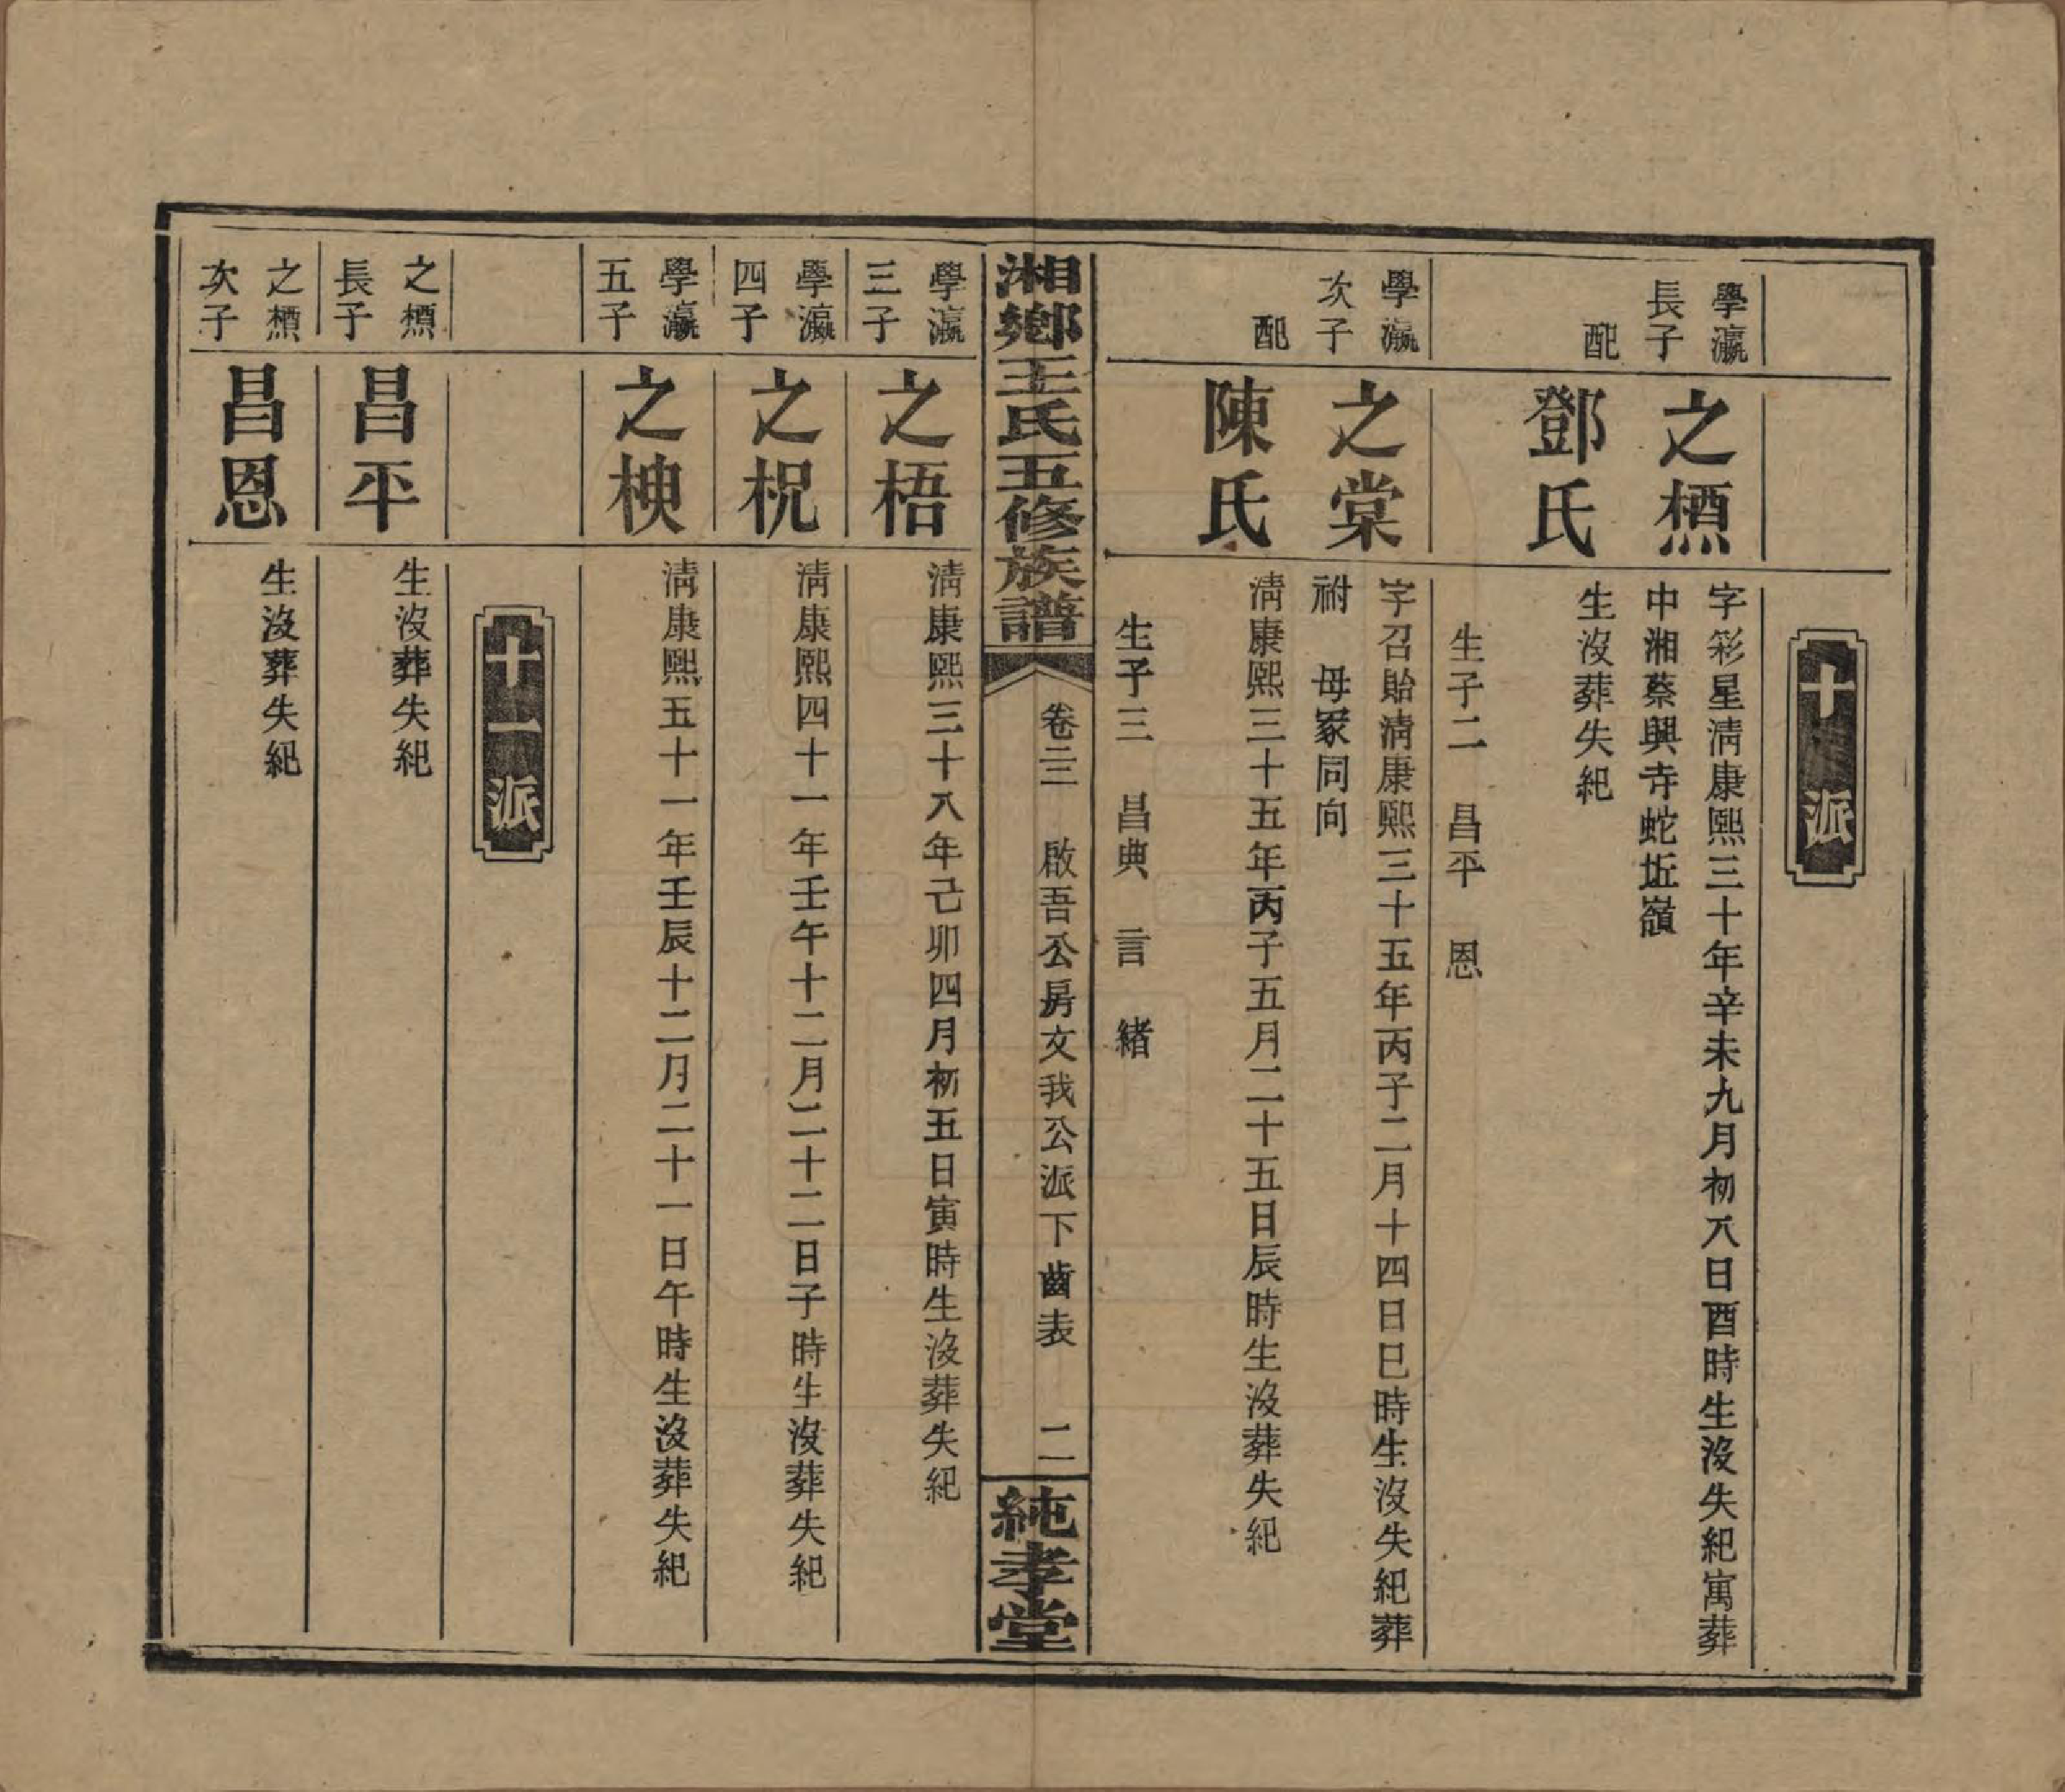 十派
學瀛
長子
之槱
字彩星淸康熙三十年辛未九月初八日酉時生沒失紀寓葬
中湘蔡興寺蛇坵嶺
配
鄧氏
生沒葬失紀
生子二 昌平 恩
學瀛
次子
之棠
字召貽淸康熙三十五年丙子二月十四日巳時生沒失紀葬
祔 母冢同向
配
陳氏
淸康熙三十五年丙子五月二十五日辰時生沒葬失紀
生子三 昌典 言 緒
湘鄉王氏五修族譜
卷二三 啟吾公房文我公派下齒表 二
純孝堂
學瀛
三子
之梧
淸康熙三十八年己卯四月初五日寅時生沒葬失紀
學瀛
四子
之柷
淸康熙四十一年壬午十二月二十二日子時生沒葬失紀
學瀛
五子
之㭒
淸康熙五十一年壬辰十二月二十一日午時生沒葬失紀
十一派
之槱
長子
昌平
生沒葬失紀
之槱
次子
昌恩
生沒葬失紀